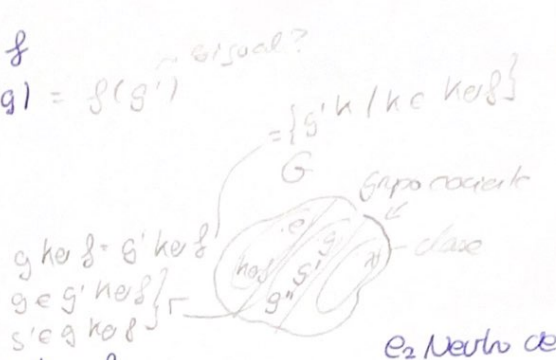 f
g) = f(g') es igual?
= {g'k / k ∈ Ker f}
G
grupo cociente
clase
e g
Ker f g'
g''
g Ker f = g' Ker f
g ∈ g' Ker f
g' ∈ g Ker f
e₂ Neutro de